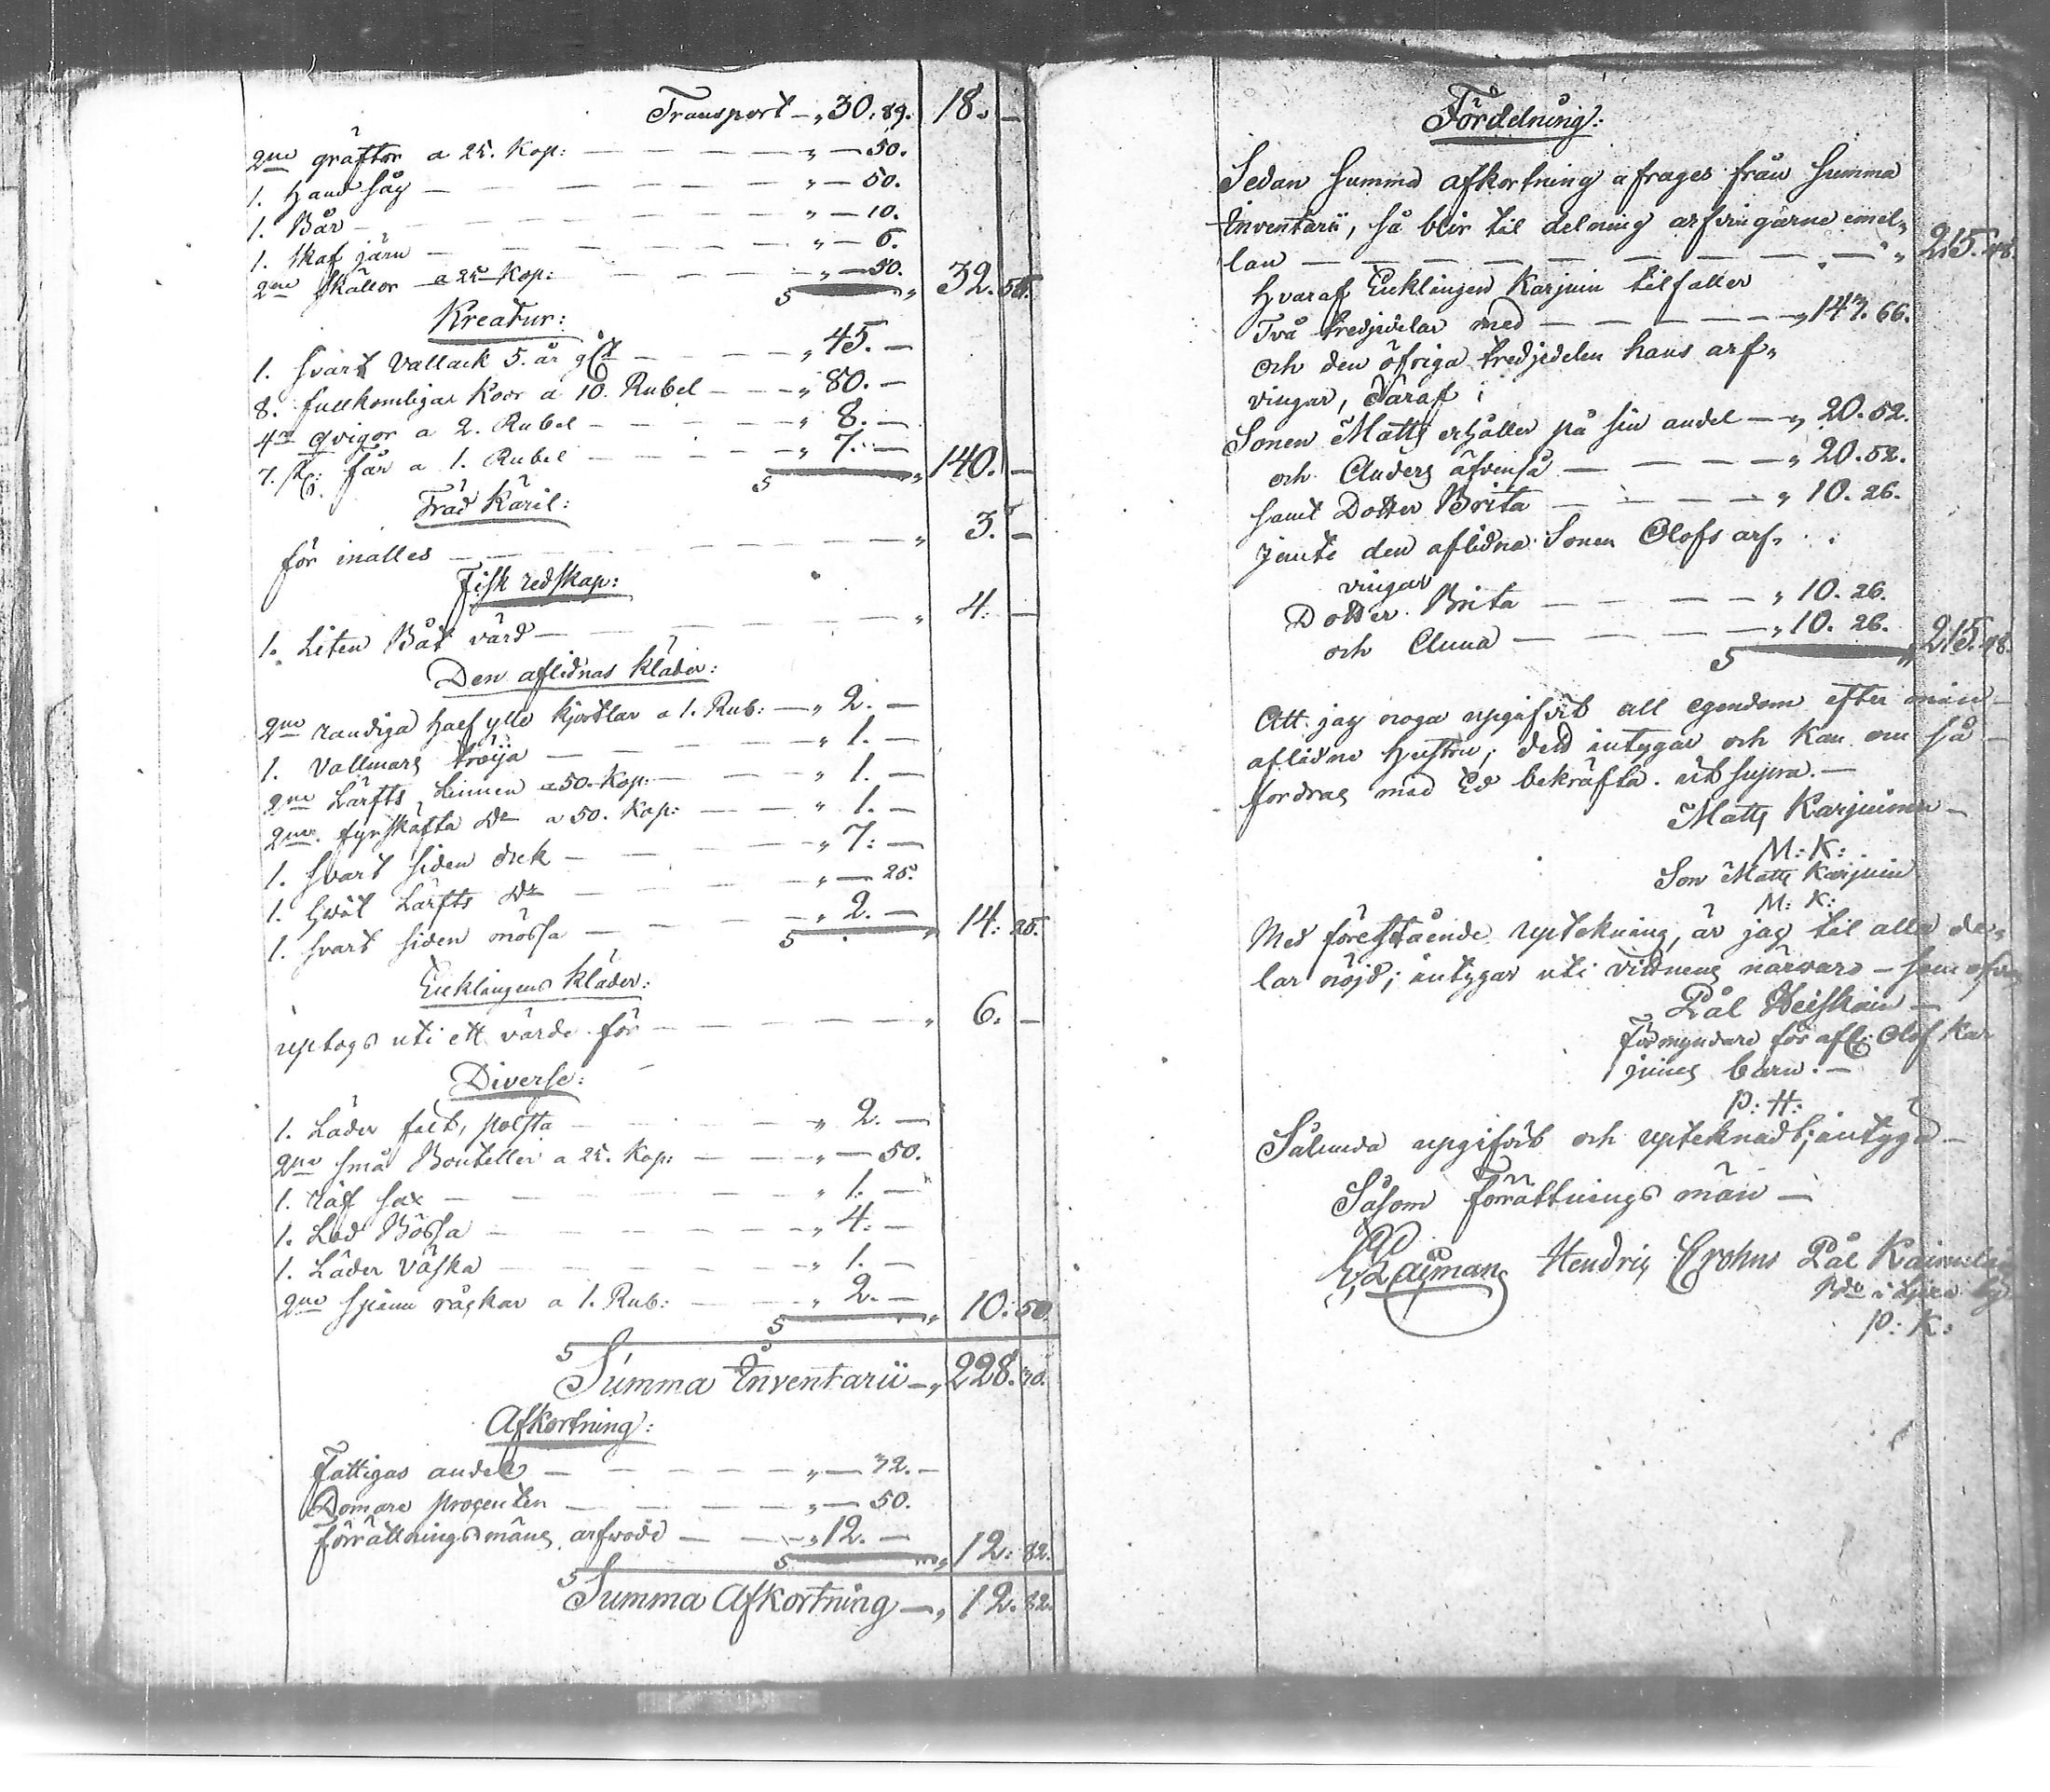 Transport — „ 30. 89. 18. —
2ne gräftor a 25. Kop: — „ — 50.
1. Hand såg — „ — 50.
1. Bår — „ — 10.
1. Skaf järn — „ — 6.
2ne skällor a 25 Kop: — „ — 50. 32. 55.
Kreatur:
1. svart Vallack 5. år glt — „ 45. —
8. fullkomligar Koor a 10. Rubel — „ 80. —
4ra qvigor a 2. Rubel — „ 8. —
7. st: får a 1. Rubel — „ 7. — 140. —
Träd Käril:
för inalles — „ 3. —
Fisk redskap:
1. Liten Båt värd — „ 4. —
Den aflidnas kläder:
2ne randiga half ylle kjortlar a 1. Rub: — „ 2. —
1. Vallmars tröija — „ 1. —
2ne Lärfts Linnen a 50. Kop: — „ 1. —
2ne fyrskäfta do a 50. Kop: — „ 1. —
1. svart siden duk — „ 7. —
1. hvit Lärfts do — „ — 25.
1. svart siden mössa — „ 2. — 14. 25.
Encklingens kläder:
uptogs uti ett värde för — „ 6. —
Diverse:
1. Läder fält, polsta — „ 2. —
2ne små Bouteller a 25. Kop: — „ — 50.
1. räf sax — „ 1. —
1. Lod Bössa — „ 4. —
1. Läder Väska — „ 1. —
2ne råg kar a 1. Rub: — „ 2. — 10. 50.
Summa Inventarii — „ 228. 30.
Afkortning:
Fattigas andel — „ — 32. —
Domare procenten — „ — 50.
förrättningsmäns arfvode — „ 12. — 12. 82.
Summa Afkortning — „ 12. 82.
Fördelning:
Sedan Summa afkortning afrages från Summa
Inventarii, så blir til delning arfvingarne emel„
lan — „ 215. 48.
Hvaraf Encklingen Karjuin tilfaller
Två tredjedelar med — „ 143. 66.
och den öfriga tredjedelen hans arf„
vingar, däraf i
Sonen Matts erhåller på sin andel — „ 20. 52.
och Anders äfvenså — „ 20. 52.
samt Dotter Brita — „ 10. 26.
jemte den aflidna Sonen Olofs arf„
vingar
Dotter Brita — „ 10. 26.
och Anna — „ 10. 26. 215. 48.
Att jag noga upgifvit all egendom efter min
aflidne Hustru, det intygar och kan om så
fordras med Ed bekräfta. ut supra. —
Matts Karjuinen —
M: K:
Son Matts Karjuin
M: K:
Med förestående uptekning, är jag til alla de„
lar nöjd; intygar uti vittnens närvaro — som ofvan
Pål Heiskain —
Förmyndare för afl: Olof Kar
juines barn. —
P: H:
Sålunda upgifvit och upteknadt; intyga —
Såsom Förrättnings män —
Hendric Crohns Pål
P: K: